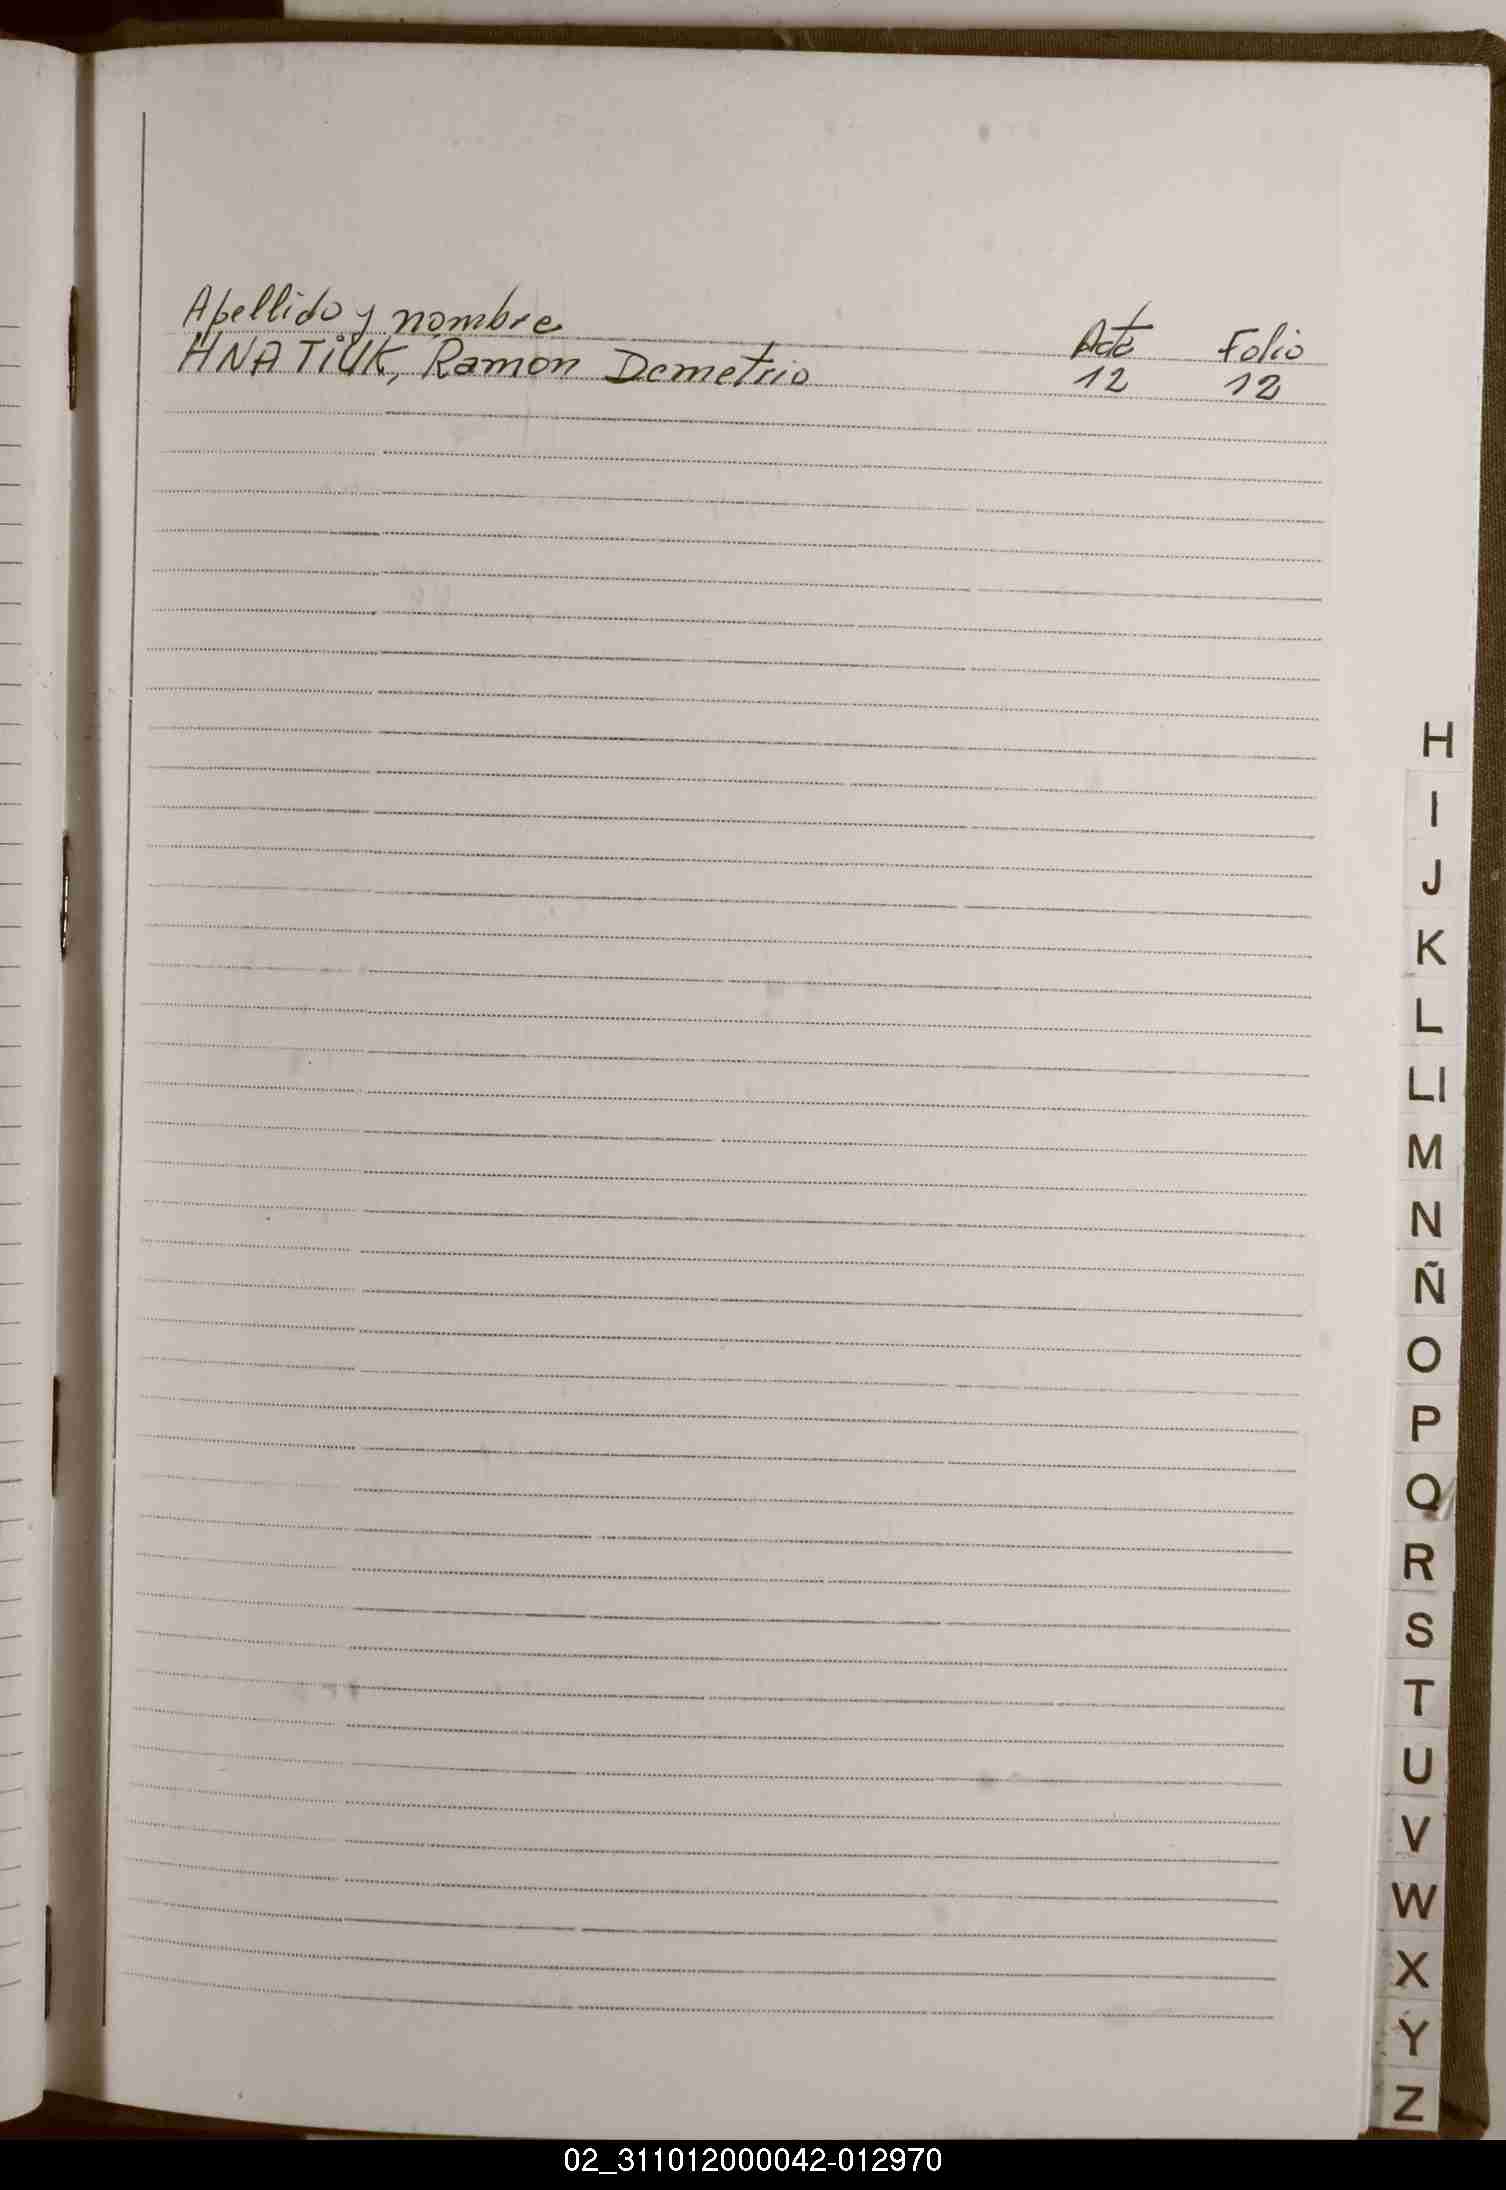 Apellido y nombre Acta Folio
HNATIUK, Ramon Demetrio 12 12
H
I
J
K
L
Ll
M
N
Ñ
O
P
Q
R
S
T
U
V
W
X
Y
Z
02_311012000042-012970